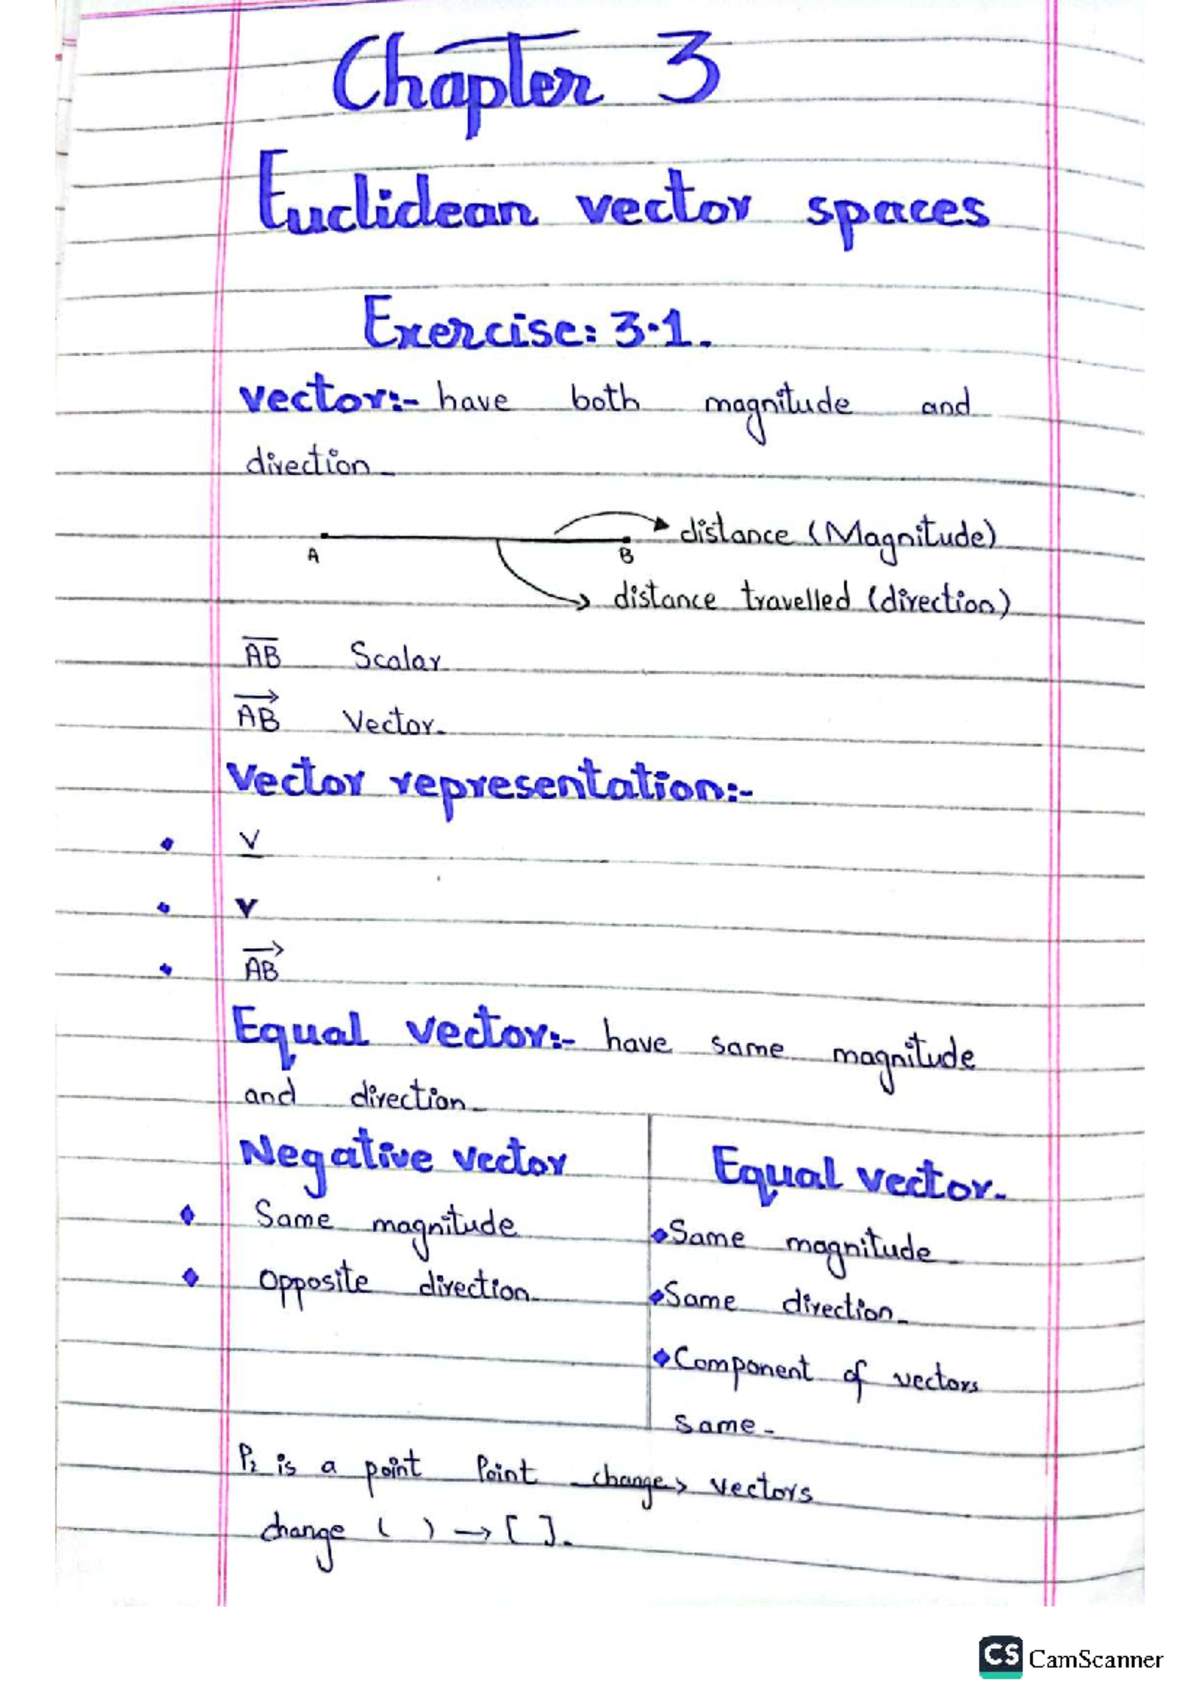 Chapter 3
Euclidean vector spaces
Exercise: 3.1.
vector:- have both magnitude and
direction
distance (Magnitude)
A B
distance travelled (direction)
A̅B̅ Scalar
A⃗B⃗ Vector.
Vector representation:-
• V̲
• V
• A⃗B⃗
Equal vector:- have same magnitude
and direction
Negative vector
• Same magnitude
• Opposite direction
Equal vector.
• Same magnitude
• Same direction.
• Component of vectors
same.
P₂ is a point Point change> vectors
change ( ) → [ ].
CS CamScanner